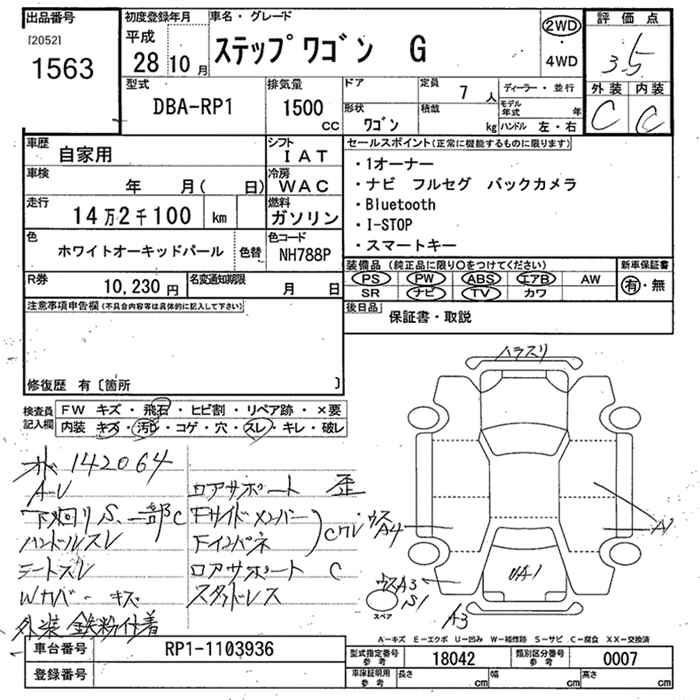 出品番号 初度登録年月 車名・グレード 評価点
[2052] 平成 ステップワゴン G 2WD
1563 28 年 10 月 ・ 3.5
4WD
型式 排気量 ドア 定員 7 人 ディーラー・並行 外装 内装
DBA-RP1 1500 cc 形状 ワゴン 積載 kg モデル年式 年 C C
ハンドル 左・右
車歴 自家用 シフト IAT セールスポイント(正常に機能するものに限ります)
車検 年 月( 日) 冷房 WAC ・1オーナー
・ナビ フルセグ バックカメラ
走行 14万2千100 km 燃料 ガソリン ・Bluetooth
・I-STOP
色 ホワイトオーキッドパール 色替 色コード NH788P ・スマートキー
R券 10,230 円 名変通知期限 月 日 装備品(純正品に限り○をつけてください) 新車保証書
PS PW ABS エアB AW 有・無
SR ナビ TV カワ
注意事項申告欄(不具合内容等は具体的に記入して下さい) 後日品 保証書・取説
修復歴 有〔箇所 〕
検査員記入欄 FW キズ・飛石・ヒビ割・リペア跡・×要
内装 キズ・汚れ・コゲ・穴・スレ・キレ・破レ
142064
A-U ロアサポート 歪
下廻りS、一部C Fサイドメンバー
ハンドルスレ Fインパネ Cワレ
シートスレ ロアサポート C
Wカバー キズ スタッドレス
外装 鉄粉付着
ハラスリ
ウス A4
A1
ウスA3
S1
UA1
A3
スペア
A-キズ E-エクボ U-凹み W-補修跡 S-サビ C-腐食 XX-交換済
車台番号 RP1-1103936 型式指定番号 参考 18042 類別区分番号 参考 0007
登録番号 車体証明用 参考 長さ cm 幅 cm 高さ cm